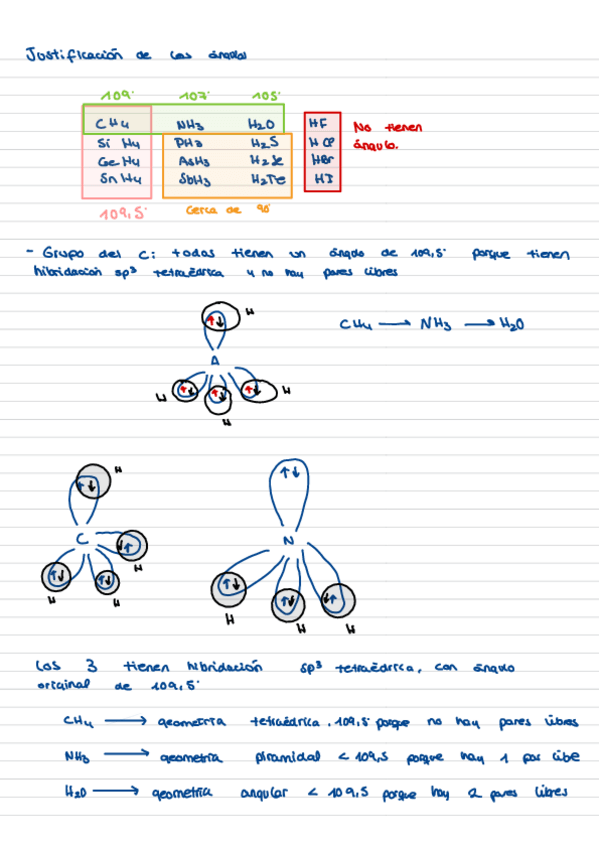 Justificación de los ángulos
109° 107° 105°
CH4 NH3 H2O HF
Si H4 PH3 H2S HCl
GeH4 AsH3 H2Se HBr
SnH4 SbH3 H2Te HI
No tienen
ángulo.
109,5° Cerca de 90°
- Grupo del C: todas tienen un ángulo de 109,5° porque tienen
hibridación sp³ tetraédrica y no hay pares libres
CH4 → NH3 → H2O
H
A
H H
H
H
C N
H
H H
H H H
Las 3 tienen hibridación sp³ tetraédrica, con ángulo
original de 109,5°
CH4 → geometría tetraédrica. 109,5° porque no hay pares libres
NH3 → geometría piramidal < 109,5 porque hay 1 par libe
H2O → geometría angular < 109,5 porque hay 2 pares libres